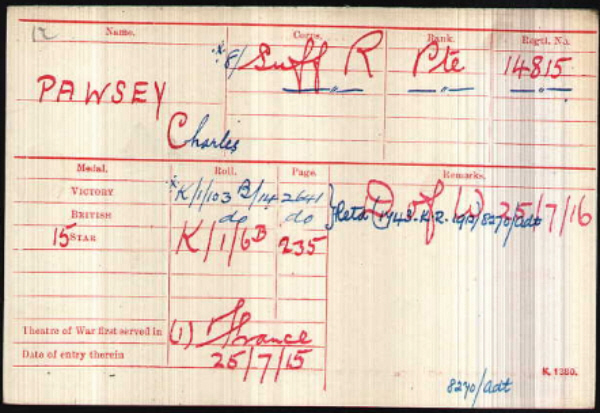 Name. Corps. Rank. Regtl. No.
PAWSEY
Charles
*8/ Suff R Pte 14815
— " — — " — — " —
Medal. Roll. Page. Remarks.
VICTORY *K/1/103 B/14 2641
BRITISH do do
15 STAR K/1/6B 235
D of (w) 25/7/16
Theatre of War first served in (1) France
Date of entry therein 25/7/15
K. 1380.
8270/adt